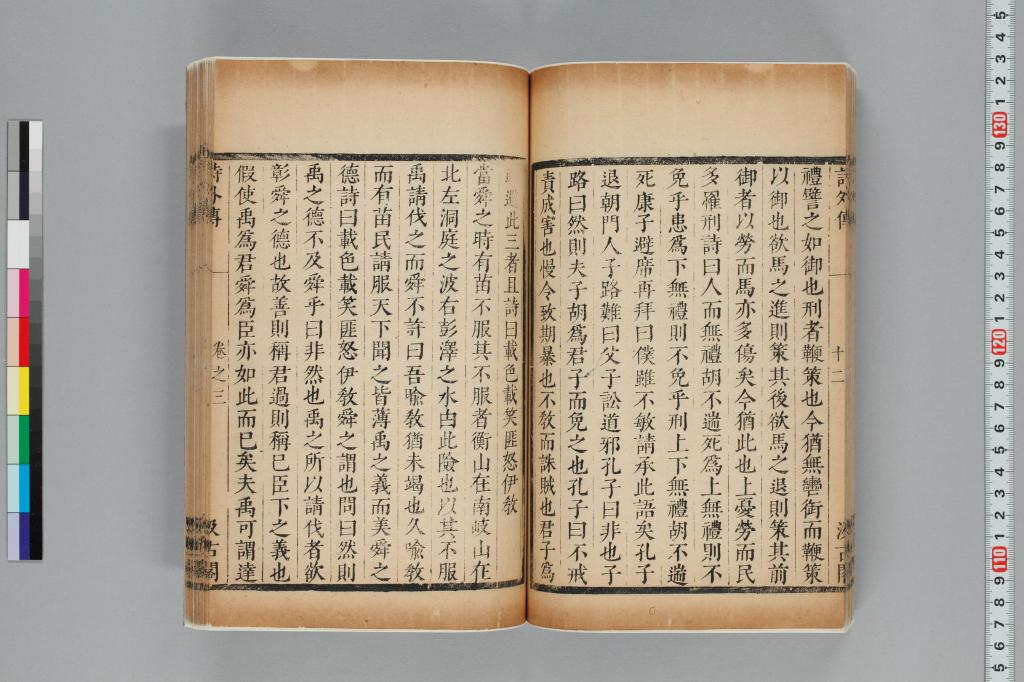 詩外傳
十二
汲古閣
禮譬之如御也刑者鞭策也今猶無轡銜而鞭策
以御也欲馬之進則策其後欲馬之退則策其前
御者以勞而馬亦多傷矣今猶此也上憂勞而民
多罹刑詩曰人而無禮胡不遄死爲上無禮則不
免乎患爲下無禮則不免乎刑上下無禮胡不遄
死康子避席再拜曰僕雖不敏請承此語矣孔子
退朝門人子路難曰父子訟道邪孔子曰非也子
路曰然則夫子胡爲君子而免之也孔子曰不戒
責成害也慢令致期暴也不敎而誅賊也君子爲
此三者且詩曰載色載笑匪怒伊敎
當舜之時有苗不服其不服者衡山在南岐山在
北左洞庭之波右彭澤之水由此險也以其不服
禹請伐之而舜不許曰吾喩敎猶未竭也久喩敎
而有苗民請服天下聞之皆薄禹之義而美舜之
德詩曰載色載笑匪怒伊敎舜之謂也問曰然則
禹之德不及舜乎曰非然也禹之所以請伐者欲
彰舜之德也故善則稱君過則稱已臣下之義也
假使禹爲君舜爲臣亦如此而已矣夫禹可謂達
詩外傳
卷之三
汲古閣